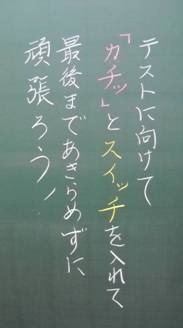 テストに向けて
「カチッ」とスイッチを入れて
最後まであきらめずに
頑張ろう!